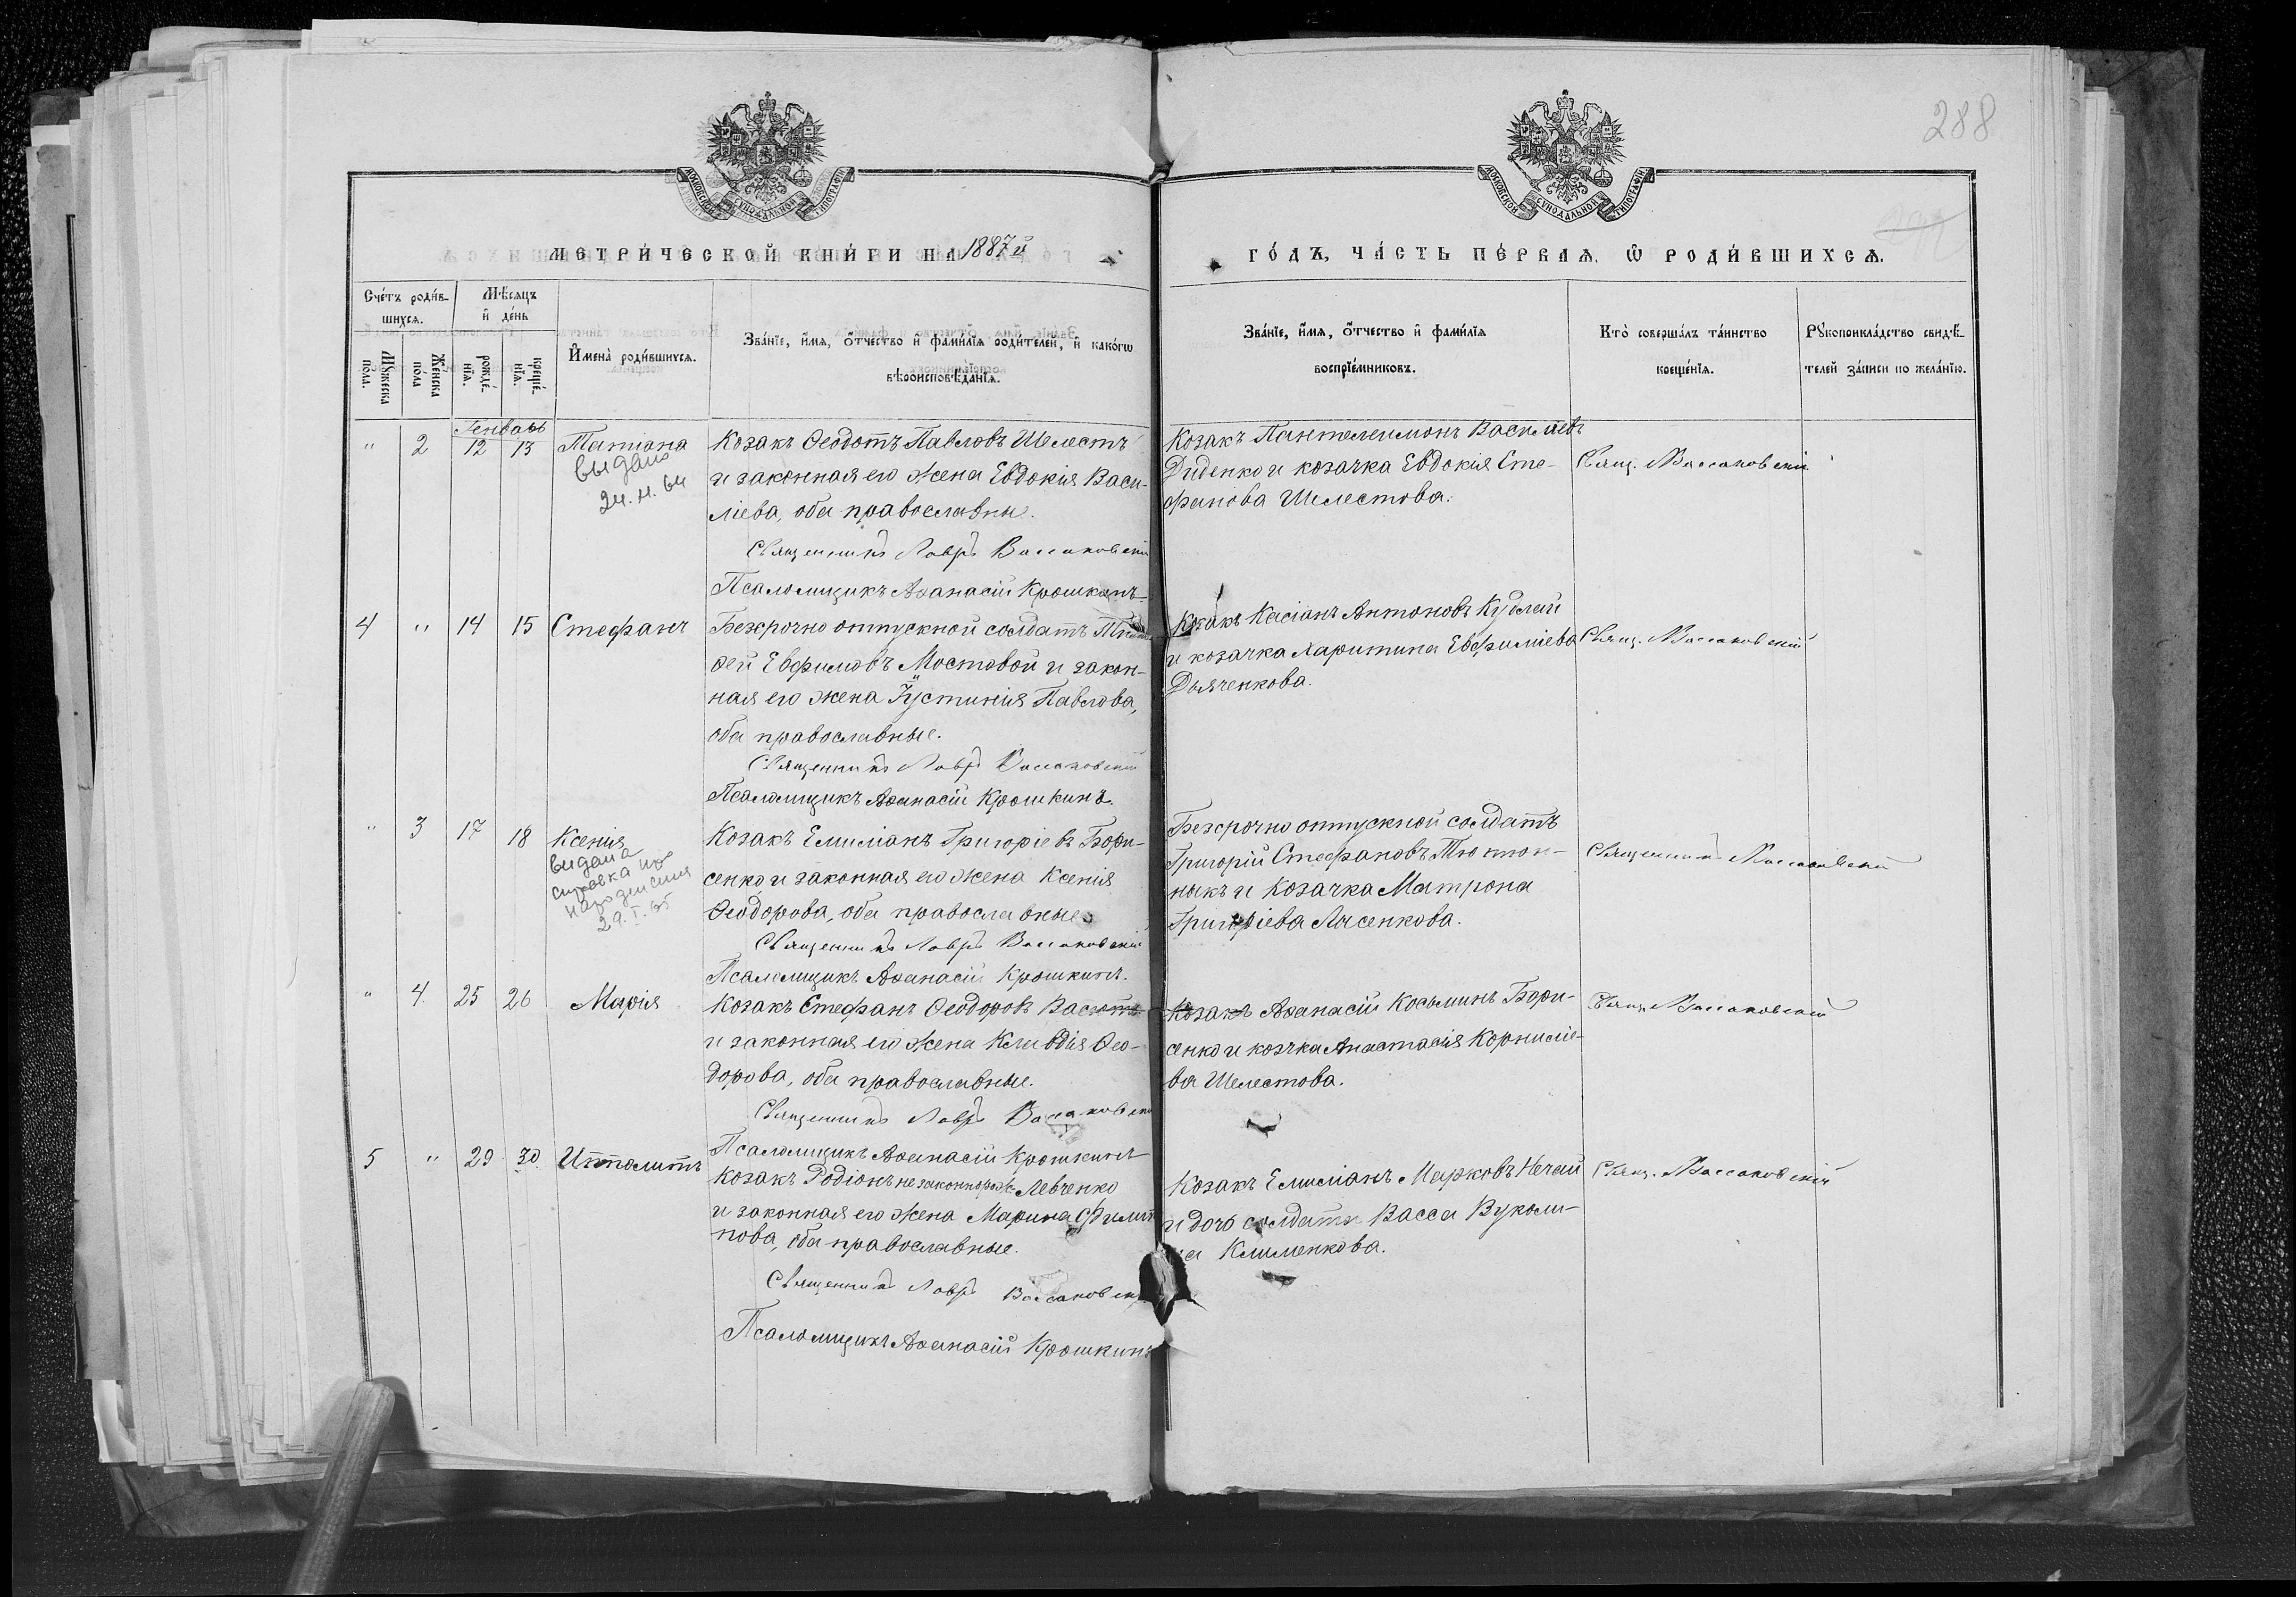 288
МОСКОВСКОЙ СУНОДАЛЬНОЙ ТИПОГРАФІИ
МОСКОВСКОЙ СУНОДАЛЬНОЙ ТИПОГРАФІИ
МЕТРИ́ЧЕСКОЙ КНИ́ГИ НА 1887й
ГО́ДЪ, ЧА́СТЬ ПЕ́РВАЯ, Ѿ РОДИ́ВШИХСѦ.
Сче́тъ роди́в-
шихсѧ.
Мѣ́сѧцъ
и҆ де́нь
Мꙋ́жеска
пола.
Же́нска
по́ла
рожде́-
нїѧ.
креще́-
нїѧ.
И҆мена̀ роди́вшихсѧ.
Зва́нїе, и҆́мѧ, ѻ҆́тчество и҆ фами́лїѧ роди́телей, и҆ како́гѡ
вѣроисповѣ́данїѧ.
Зва́нїе, и҆́мѧ, ѻ҆́тчество и҆ фами́лїѧ
воспрїе́мниковъ.
Кто̀ соверша́лъ та́инство
креще́нїѧ.
Рꙋкоприкла́дство свидѣ́-
телей за́писи по жела́нїю.
Генварь
" 2 12 13 Татіана
выдано
24.11.64
Козакъ Ѳеодотъ Павловъ Шелестъ
и законная его жена Евдокія Васи-
ліева, оба православны.
Священникъ Лавръ Вассаковскій
Псаломщикъ Аѳанасій Крошкинъ.
Козакъ Пантелеимонъ Василіевъ
Диденко и козачка Евдокія Сте-
фанова Шелестова.
Свящ. Вассаковскій
4 " 14 15 Стефанъ
Безсрочно отпускной солдатъ Тимо-
ѳей Евфимовъ Мостовой и закон-
ная его жена Іустинія Павлова,
оба православные.
Священникъ Лавръ Вассаковскій
Псаломщикъ Аѳанасій Крошкинъ.
Козакъ Касіанъ Антоновъ Кублай
и козачка Харитина Евфиміева
Дьяченкова.
Свящ. Вассаковскій
" 3 17 18 Ксенія
видана
справка про
народження
29.I.65
Козакъ Емиліанъ Григоріевъ Бори-
сенко и законная его жена Ксенія
Ѳеодорова, оба православные
Священникъ Лавръ Вассаковскій
Псаломщикъ Аѳанасій Крошкинъ.
Безсрочно отпускной солдатъ
Григорій Стефановъ Тютюн-
никъ и козачка Матрона
Григоріева Лисенкова.
Священникъ Вассаковскій
" 4. 25 26 Марія
Козакъ Стефанъ Ѳеодоровъ Васюта
и законная его жена Клавдія Ѳео-
дорова, оба православные.
Священникъ Лавръ Вассаковскій
Псаломщикъ Аѳанасій Крошкинъ
Козакъ Аѳанасій Косьминъ Бори-
сенко и козчка Анастасія Корниліе-
ва Шелестова.
Свящ. Вассаковскій
5 " 29 30. Ипполитъ
Козакъ Родіонъ незаконнорож. Левченко
и законная его жена Марина Филип
пова, оба православные.
Священникъ Лавръ Вассаковскій
Псаломщикъ Аѳанасій Крошкинъ
Козакъ Емиліанъ Марковъ Нечай
и дочь солдата Васса Вукoли-
на Клименкова.
Свящ. Вассаковскій